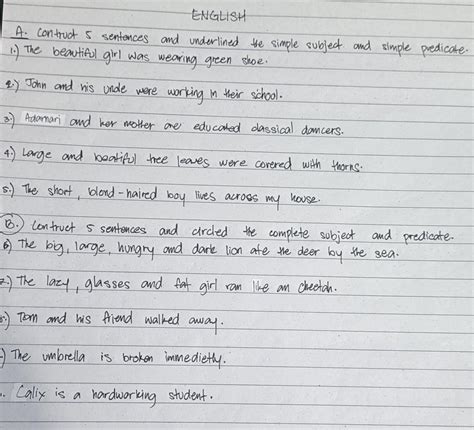 ENGLISH
A. Contruct 5 sentences and underlined the simple subject and simple predicate.
1.) The beautiful girl was wearing green shoe.
2.) John and his uncle were working in their school.
3.) Adamari and her mother are educated classical dancers.
4.) Large and beatiful tree leaves were covered with thorns.
5.) The short, blond-haired boy lives across my house.
B.) Contruct 5 sentences and circled the complete subject and predicate.
6) The big, large, hungry and dark lion ate the deer by the sea.
7.) The lazy, glasses and fat girl ran like an cheetah.
8.) Tom and his friend walked away.
) The umbrella is broken immedietly.
. Calix is a hardworking student.